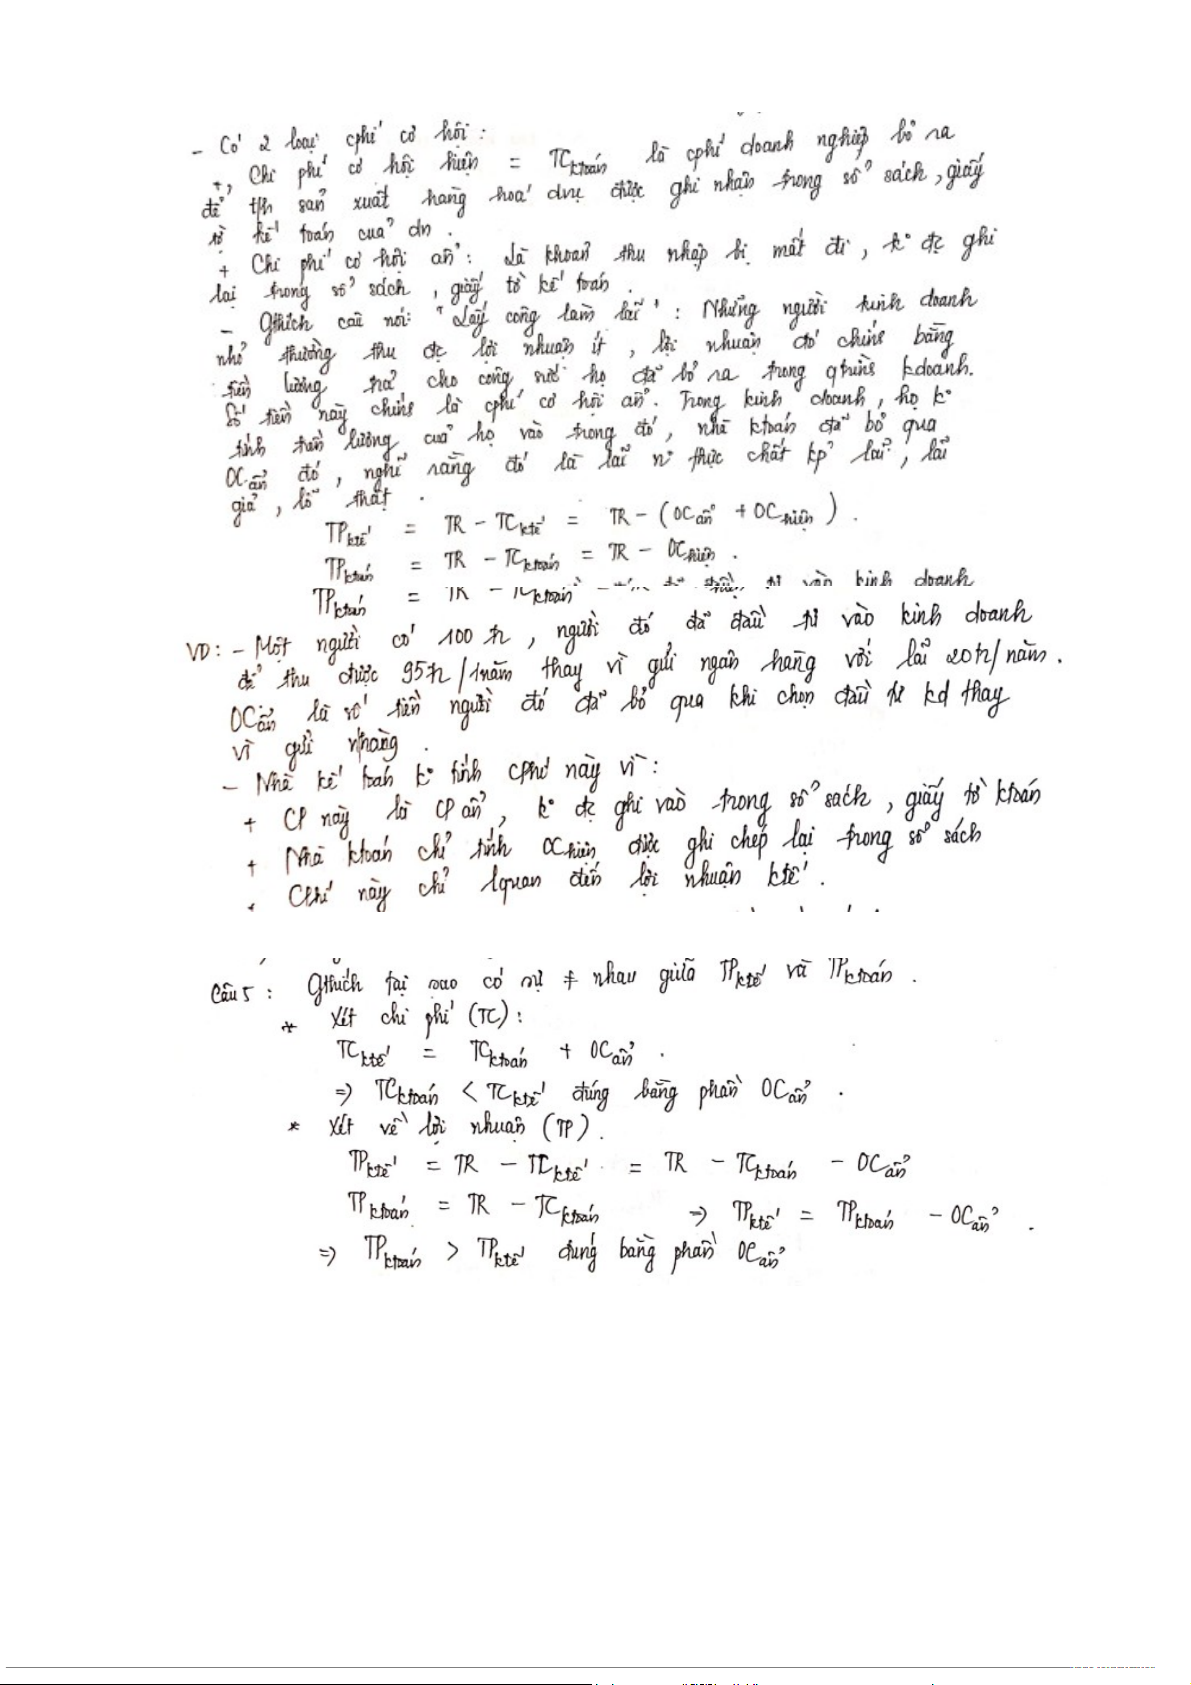 - Có 2 loại cphí cơ hội:
+, Chi phí cơ hội hiện = TCktoán là cphí doanh nghiệp bỏ ra
để t/h sản xuất hàng hoá dvụ được ghi nhận trong sổ sách, giấy
tờ kế toán của dn.
+ Chi phí cơ hội ẩn: Là khoản thu nhập bị mất đi, ko đc ghi
lại trong sổ sách, giấy tờ kế toán.
- Gthích câu nói: "Lấy công làm lãi": Những người kinh doanh
nhỏ thường thu đc lợi nhuận ít, lợi nhuận đó chính bằng
tiền lương trả cho công sức họ đã bỏ ra trong qtrình kdoanh.
Số tiền này chính là cphí cơ hội ẩn. Trong kinh doanh, họ ko
tính tiền lương của họ vào trong đó, nhà ktoán đã bỏ qua
OCẩn đó, nghĩ rằng đó là lãi n` thực chất kp lãi, lãi
giả, lỗ thật.
TPktế = TR - TCktế = TR - (OCẩn + OChiện).
TPktoán = TR - TCktoán = TR - OChiện.
TPktoán = TR - TCktoán
VD: - Một người có 100 tr, người đó đã đầu tư vào kinh doanh
để thu được 95tr/1năm thay vì gửi ngân hàng với lãi 20tr/năm.
OCẩn là số tiền người đó đã bỏ qua khi chọn đầu tư kd thay
vì gửi nhàng.
- Nhà kế toán ko tính cphí này vì:
+ CP này là CP ẩn, ko đc ghi vào trong sổ sách, giấy tờ ktoán
+ Nhà ktoán chỉ tính OChiện được ghi chép lại trong sổ sách
+ CPhí này chỉ lquan đến lợi nhuận ktế.
Câu 5: Gthích tại sao có sự ≠ nhau giữa TPktế và TPktoán.
* Xét chi phí (TC):
TCktế = TCktoán + OCẩn.
=> TCktoán < TCktế đúng bằng phần OCẩn.
* Xét về lợi nhuận (TP).
TPktế = TR - TCktế = TR - TCktoán - OCẩn
TPktoán = TR - TCktoán => TPktế = TPktoán - OCẩn.
=> TPktoán > TPktế đúng bằng phần OCẩn